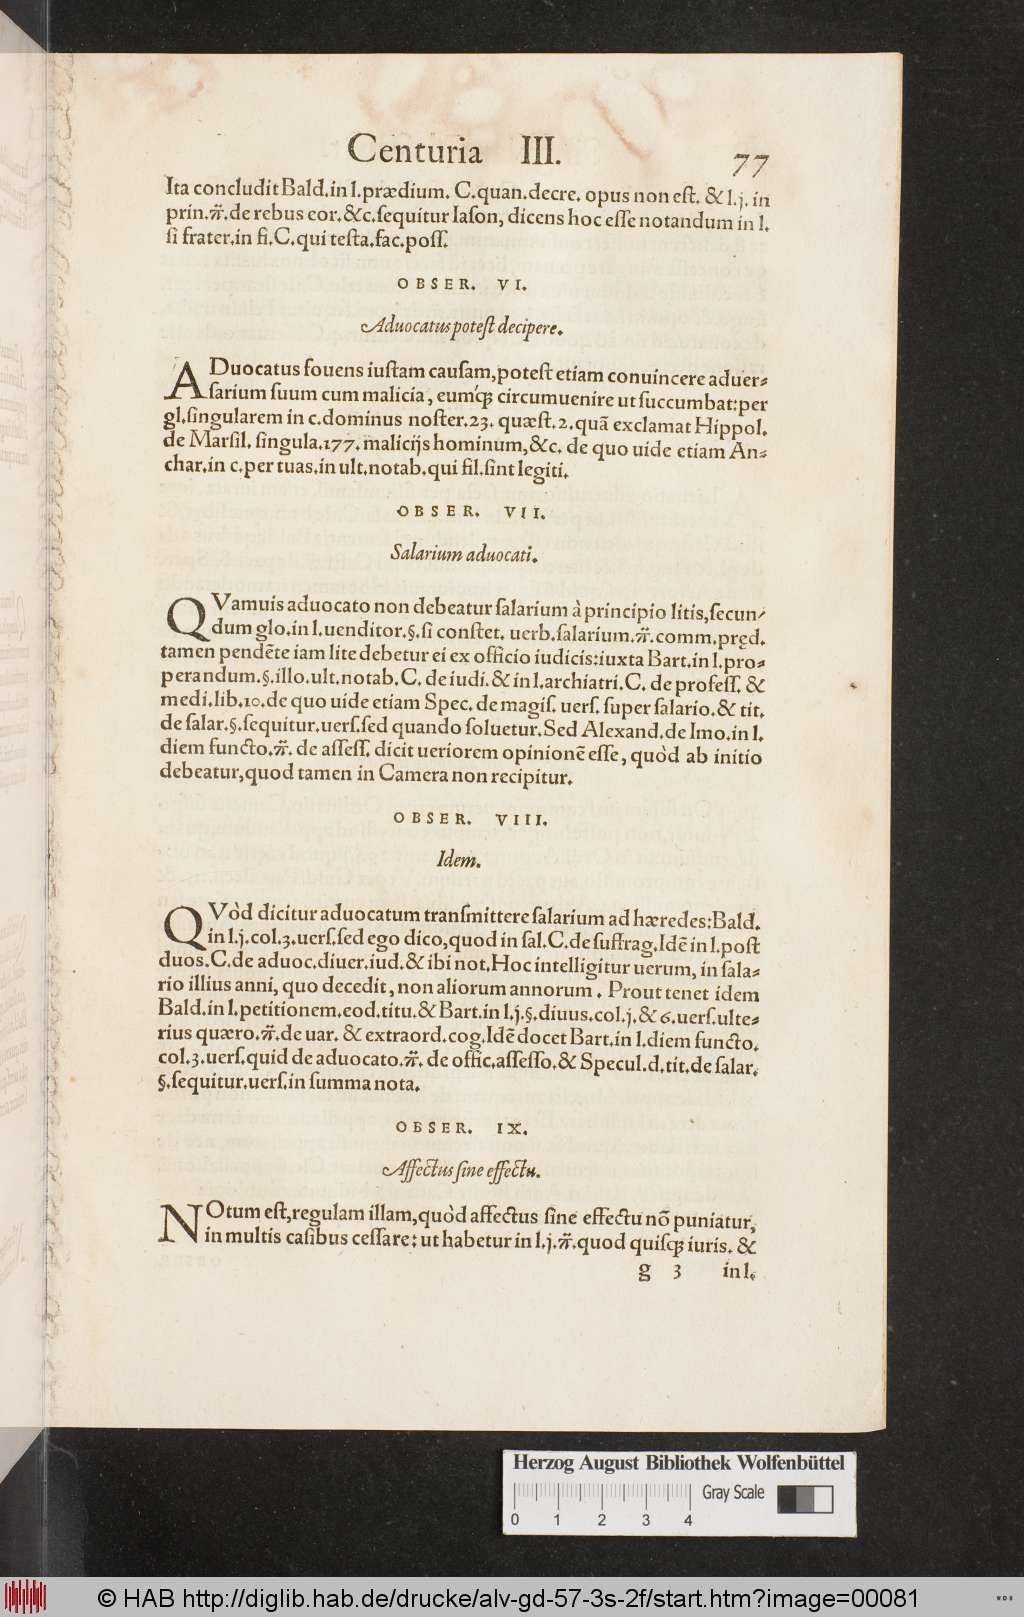 Centuria III. 77
Ita concludit Bald. in l. prædium. C. quan. decre. opus non eſt. & l. j. in
prin. ff. de rebus eor. &c. ſequitur Iaſon, dicens hoc eſſe notandum in l.
ſi frater. in fi. C. qui teſta. fac. poſſ.
OBSER. VI.
Aduocatus poteſt decipere.
ADuocatus fouens iuſtam cauſam, poteſt etiam conuincere aduer=
ſarium ſuum cum malicia, eumq́; circumuenire ut ſuccumbat: per
gl. ſingularem in c. dominus noſter. 23. quæſt. 2. quã exclamat Hippol.
de Marſil. ſingula. 177. malicijs hominum, &c. de quo uide etiam An=
char. in c. per tuas. in ult. notab. qui fil. ſint legiti.
OBSER. VII.
Salarium aduocati.
QVamuis aduocato non debeatur ſalarium à principio litis, ſecun/
dum glo. in l. uenditor. §. ſi conſtet. uerb. ſalarium. ff. comm. pręd.
tamen pendẽte iam lite debetur ei ex officio iudicis: iuxta Bart. in l. pro=
perandum. §. illo. ult. notab. C. de iudi. & in l. archiatri. C. de profeſſ. &
medi. lib. 10. de quo uide etiam Spec. de magiſ. uerſ. ſuper ſalario. & tit.
de ſalar. §. ſequitur. uerſ. ſed quando ſoluetur. Sed Alexand. de Imo. in l.
diem functo. ff. de aſſeſſ. dicit ueriorem opinionẽ eſſe, quòd ab initio
debeatur, quod tamen in Camera non recipitur.
OBSER. VIII.
Idem.
QVòd dicitur aduocatum tranſmittere ſalarium ad hæredes: Bald.
in l. j. col. 3. uerſ. ſed ego dico, quod in ſal. C. de ſuffrag. Idẽ in l. poſt
duos. C. de aduoc. diuer. iud. & ibi not. Hoc intelligitur uerum, in ſala=
rio illius anni, quo decedit, non aliorum annorum. Prout tenet idem
Bald. in l. petitionem. eod. titu. & Bart. in l. j. §. diuus. col. j. & 6. uerſ. ulte=
rius quæro. ff. de uar. & extraord. cog. Idẽ docet Bart. in l. diem functo.
col. 3. uerſ. quid de aduocato. ff. de offic. aſſeſſo. & Specul. d. tit. de ſalar.
§. ſequitur. uerſ. in ſumma nota.
OBSER. IX.
Affectus ſine effectu.
NOtum eſt, regulam illam, quòd affectus ſine effectu nõ puniatur,
in multis caſibus ceſſare: ut habetur in l. j. ff. quod quiſq; iuris. &
g 3 in l.
Herzog August Bibliothek Wolfenbüttel
Gray Scale
0 1 2 3 4
© HAB http://diglib.hab.de/drucke/alv-gd-57-3s-2f/start.htm?image=00081